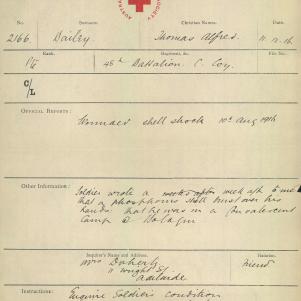 No.
Surname.
Christian Names.
Date.
2166.
Dailey
Thomas Alfred.
11.12.16
Rank.
Regiment, &c.
File No.
Pte
48th Battalion C. Coy.
C/L
OFFICIAL REPORTS:
Wounded shell shock 10th Aug 1916
Other Information:
Soldier wrote a week after to me
that a phosphorus shell burst over his
hands that he was in a Convalescent
Camp
Inquirer's Name and Address.
Relation.
Mrs Doherty
Friend
Wright St
Adelaide
Instructions:
Enquire Soldiers condition